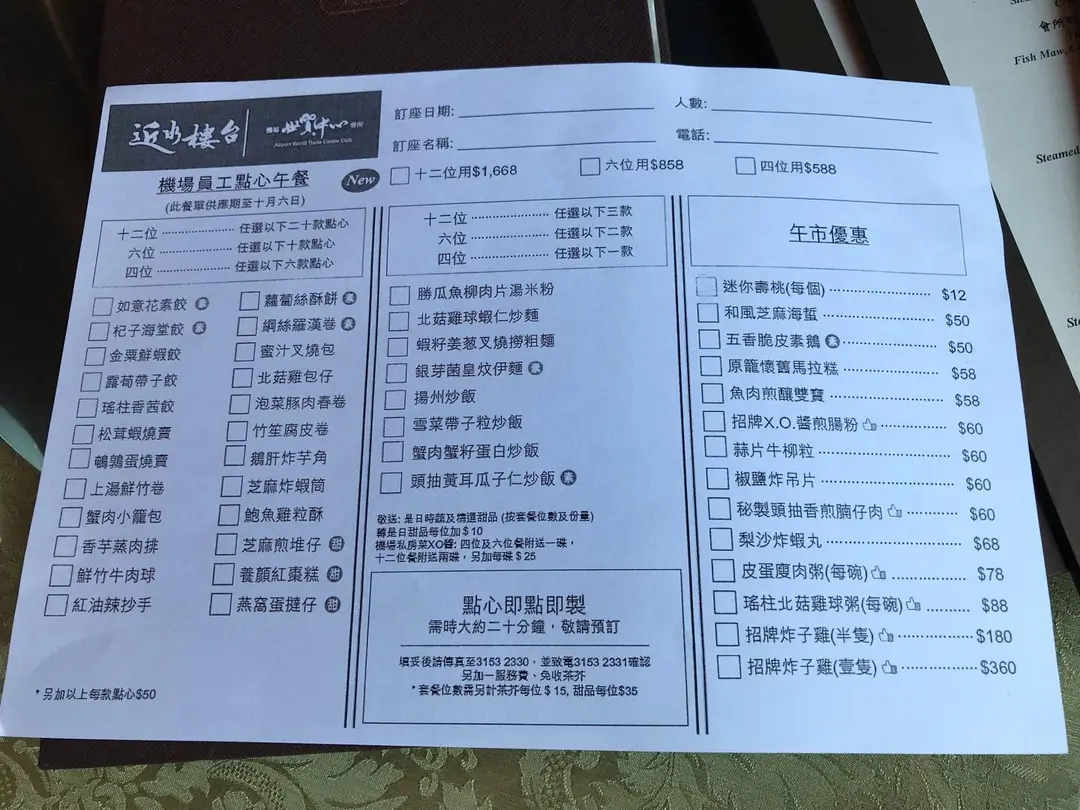 近水樓台
機場 世貿中心 會所
Airport World Trade Centre Club
訂座日期:
人數:
訂座名稱:
電話:
機場員工點心午餐
New
(此餐單供應期至十月六日)
十二位用$1,668
六位用$858
四位用$588
十二位 ........................ 任選以下二十款點心
六位 ........................ 任選以下十款點心
四位 ........................ 任選以下六款點心
如意花素餃 素
杞子海堂餃 素
金粟鮮蝦餃
露荀帶子餃
瑤柱香茜餃
松茸蝦燒賣
鵪鶉蛋燒賣
上湯鮮竹卷
蟹肉小籠包
香芋蒸肉排
鮮竹牛肉球
紅油辣抄手
蘿蔔絲酥餅 素
網絲羅漢卷 素
蜜汁叉燒包
北菇雞包仔
泡菜豚肉春卷
竹笙腐皮卷
鵝肝炸芋角
芝麻炸蝦筒
鮑魚雞粒酥
芝麻煎堆仔 甜
養顏紅棗糕 甜
燕窩蛋撻仔 甜
* 另加以上每款點心$50
十二位 ........................ 任選以下三款
六位 ........................ 任選以下二款
四位 ........................ 任選以下一款
勝瓜魚柳肉片湯米粉
北菇雞球蝦仁炒麵
蝦籽姜葱叉燒撈粗麵
銀芽菌皇炆伊麵 素
揚州炒飯
雪菜帶子粒炒飯
蟹肉蟹籽蛋白炒飯
頭抽黃耳瓜子仁炒飯 素
敬送: 是日時蔬及精選甜品 (按套餐位數及份量)
轉是日甜品每位加 $ 10
機場私房菜XO醬: 四位及六位餐附送一碟,
十二位餐附送兩碟, 另加每碟 $ 25
點心即點即製
需時大約二十分鐘，敬請預訂
填妥後請傳真至3153 2330，並致電3153 2331確認
另加一服務費、免收茶芥
* 套餐位數需另計茶芥每位 $ 15, 甜品每位$35
午市優惠
迷你壽桃(每個) ........................ $12
和風芝麻海蜇 ........................ $50
五香脆皮素鵝 素 ........................ $50
原籠懷舊馬拉糕 ........................ $58
魚肉煎釀雙寶 ........................ $58
招牌X.O.醬煎腸粉 ........................ $60
蒜片牛柳粒 ........................ $60
椒鹽炸吊片 ........................ $60
秘製頭抽香煎腩仔肉 ............ $60
梨沙炸蝦丸 ........................ $68
皮蛋廋肉粥(每碗) ............... $78
瑤柱北菇雞球粥(每碗) .......... $88
招牌炸子雞(半隻) ............... $180
招牌炸子雞(壹隻) ............... $360
會所
Fish Maw,
Steamed